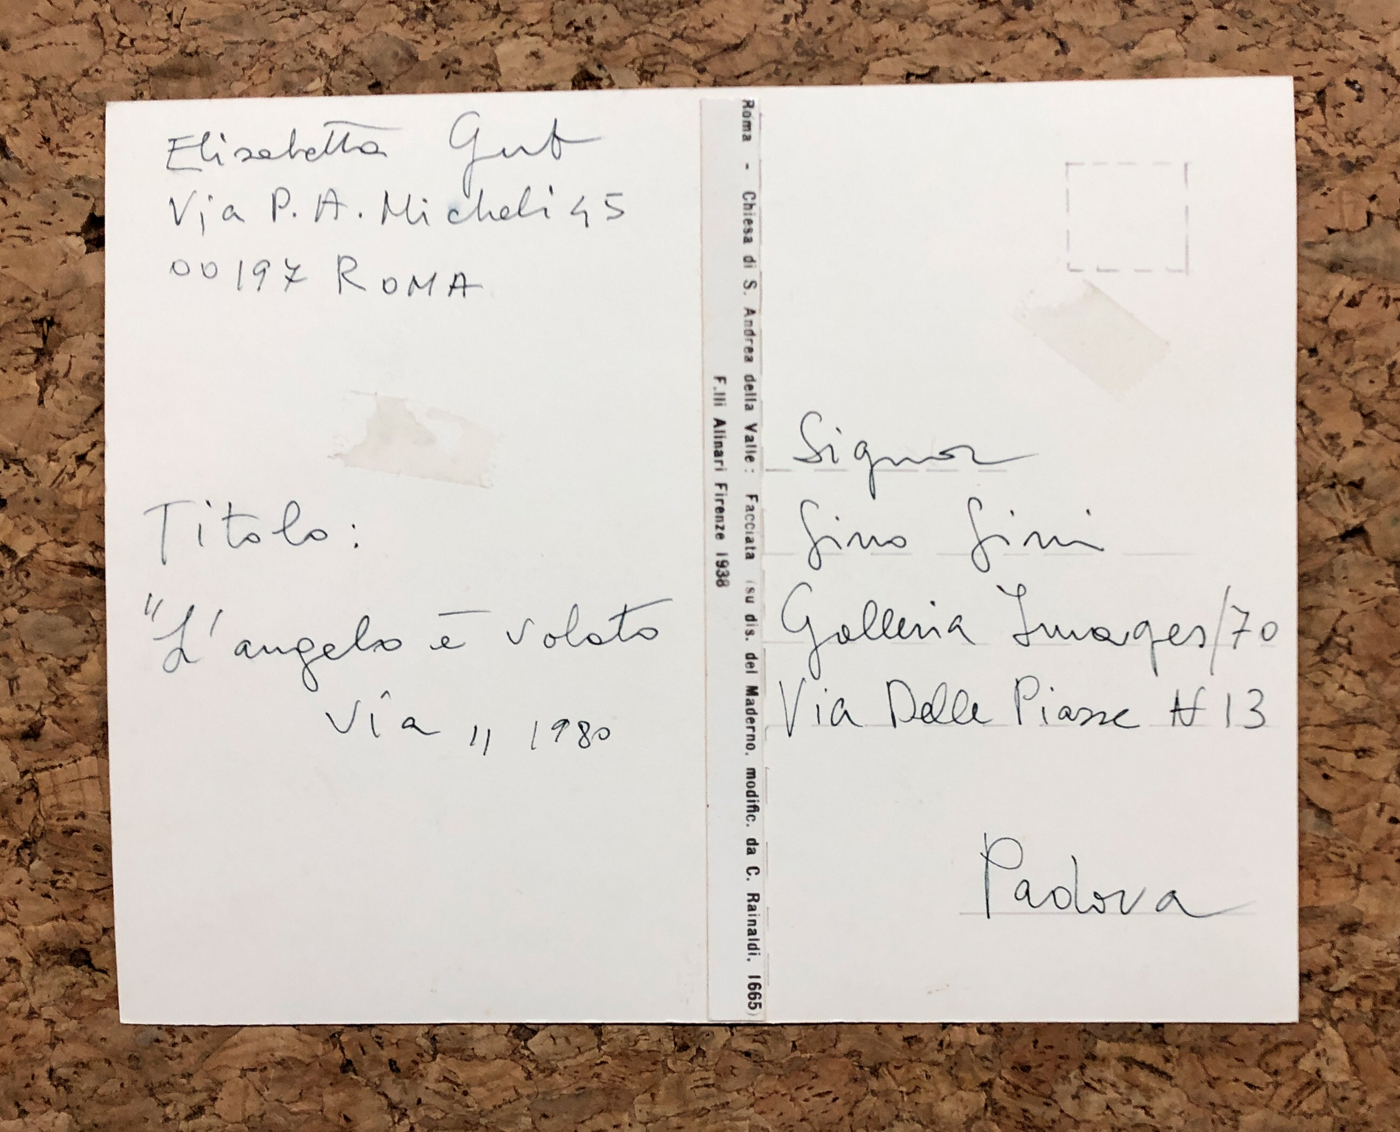 Elisabetta Gut
Via P. A. Micheli 45
00197 ROMA
Titolo:
"L'angelo è volato
via" 1980
Roma - Chiesa di S. Andrea della Valle: Facciata (su dis. del Maderno, modific. da C. Rainaldi, 1665)
F.lli Alinari Firenze 1938
Signor
Gino Gini
Galleria Images/70
Via Delle Piazze N 13
Padova